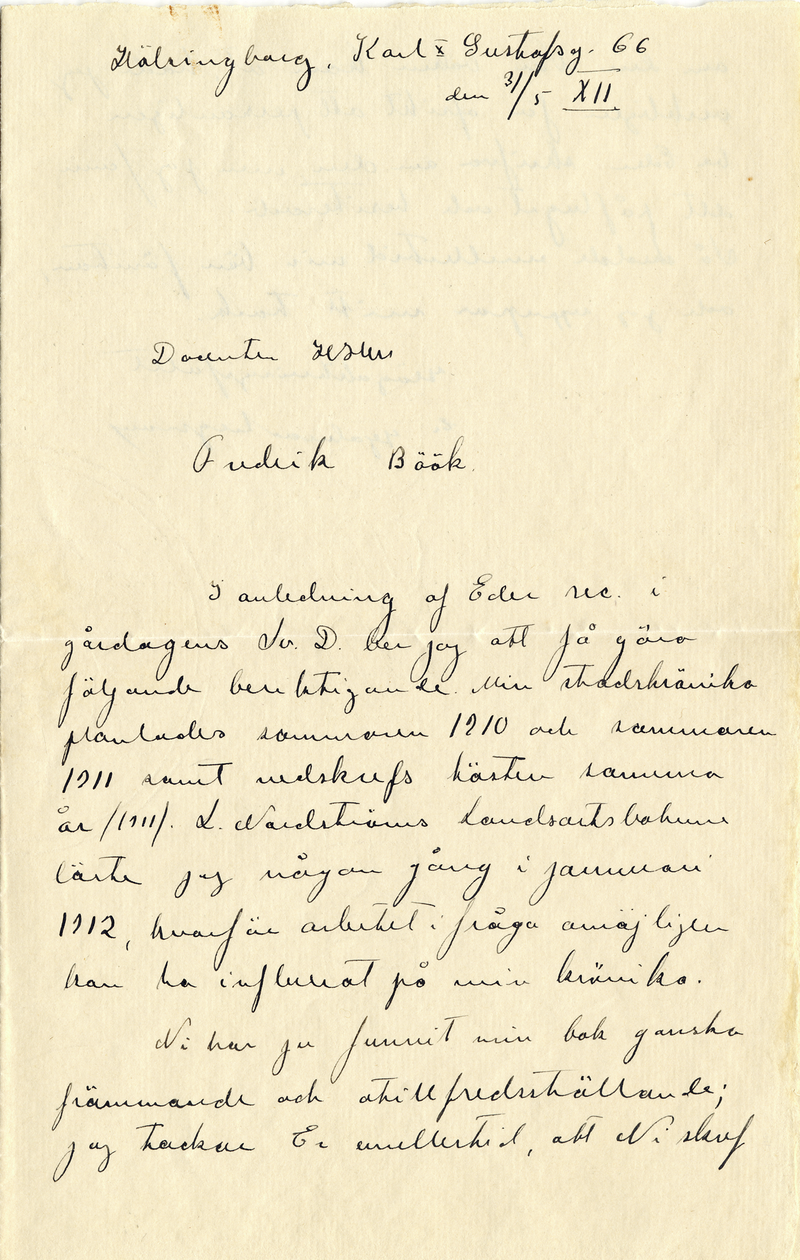 Hälsingborg, Karl X Gustafsg. 66
den 31/5 XII
Docenten
Fredrik Böök.
I anledning af Eder rec. i
gårdagens Sv. D. ber jag att få göra
följande beriktigande. Min stadskrönika
planlades sommaren 1910 och sommaren
1911 samt nedskrefs hösten samma
år /1911/. L. Nordströms Landsortsbohême
läste jag någon gång i januari
1912, hvarför arbetet i fråga omöjligen
kan ha influerat på min krönika.
Ni har ju funnit min bok ganska
främmande och otillfredsställande;
jag tackar Er emellertid, att Ni skref